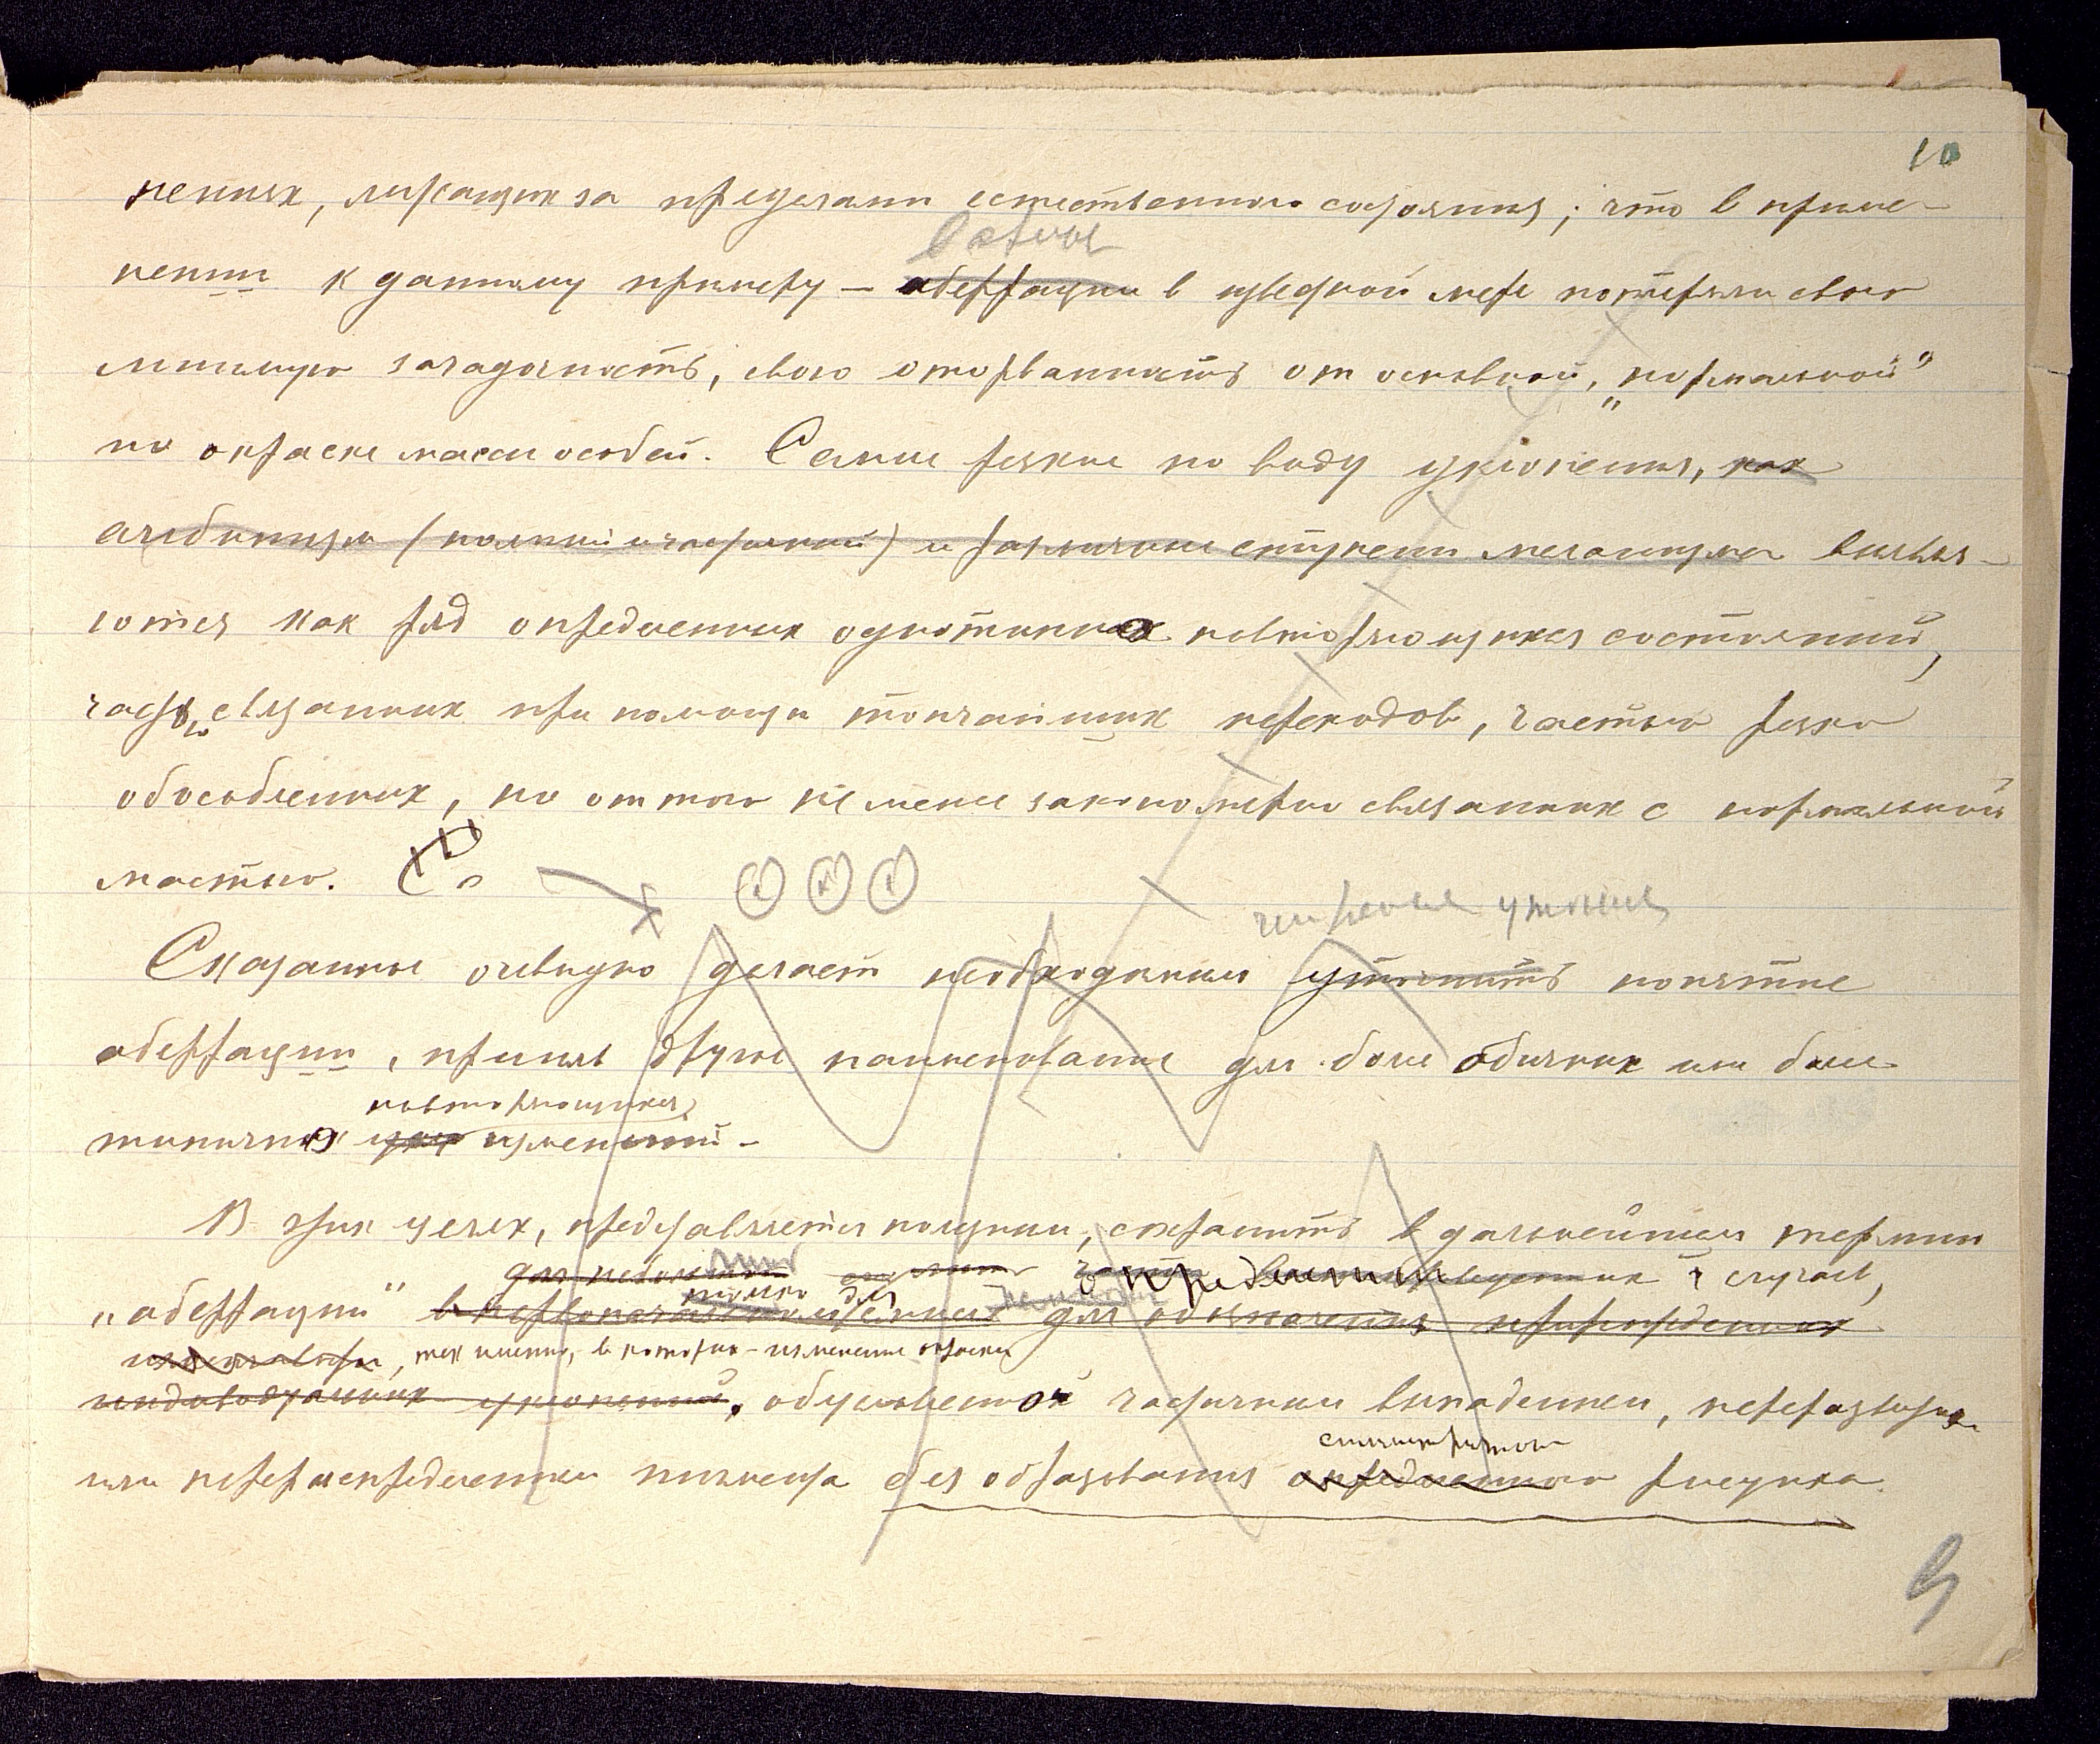 10
нениях, лежащих за пределами естественного состояния; что в приме-
нении к данному примеру — аберрации в известной мере потеряли свою
мнимую загадочность, свою оторванность от основной, „нормальной"
по окраске массы особей. Самые резкие по виду уклонения, как
альбинизм (полный и частичный) и различные ступени меланизма выявля-
ются как ряд определенных однотипных повторяющихся состояний,
частью связанных при помощи тончайших переходов, частью резко
обособленных, но от того не менее закономерно связанных с нормальной
мастью. Со
Сказанное очевидно делает необходимым уточнить понятие
аберрации, приняв другое наименование для более обычных или более
повторяющихся
типичных изменений —
В этих целях, представляется полезным, сохранить в дальнейшем термин
определенных случаев,
„аберрации" для обозначения прирожденных
, тех именно, в которых — изменение окраски
индивидуальных уклонений, обусловлено частичным выпадением, переразвитием
или перераспределением пигмента без образования определенного рисунка.